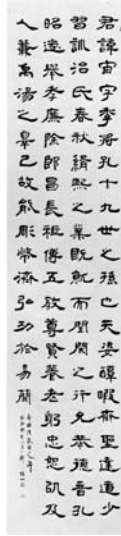 君諱宙字季將孔十九世之孫也天姿醇嘏齊聖達道少
習訓治氏春秋緝熙之業既就而閨閾之行允恭德音孔
昭遂舉孝廉除郎昌長祗傅五教尊賢養老躬忠恕以及
人兼禹湯之辠己故能彫幣濟弘功於易簡